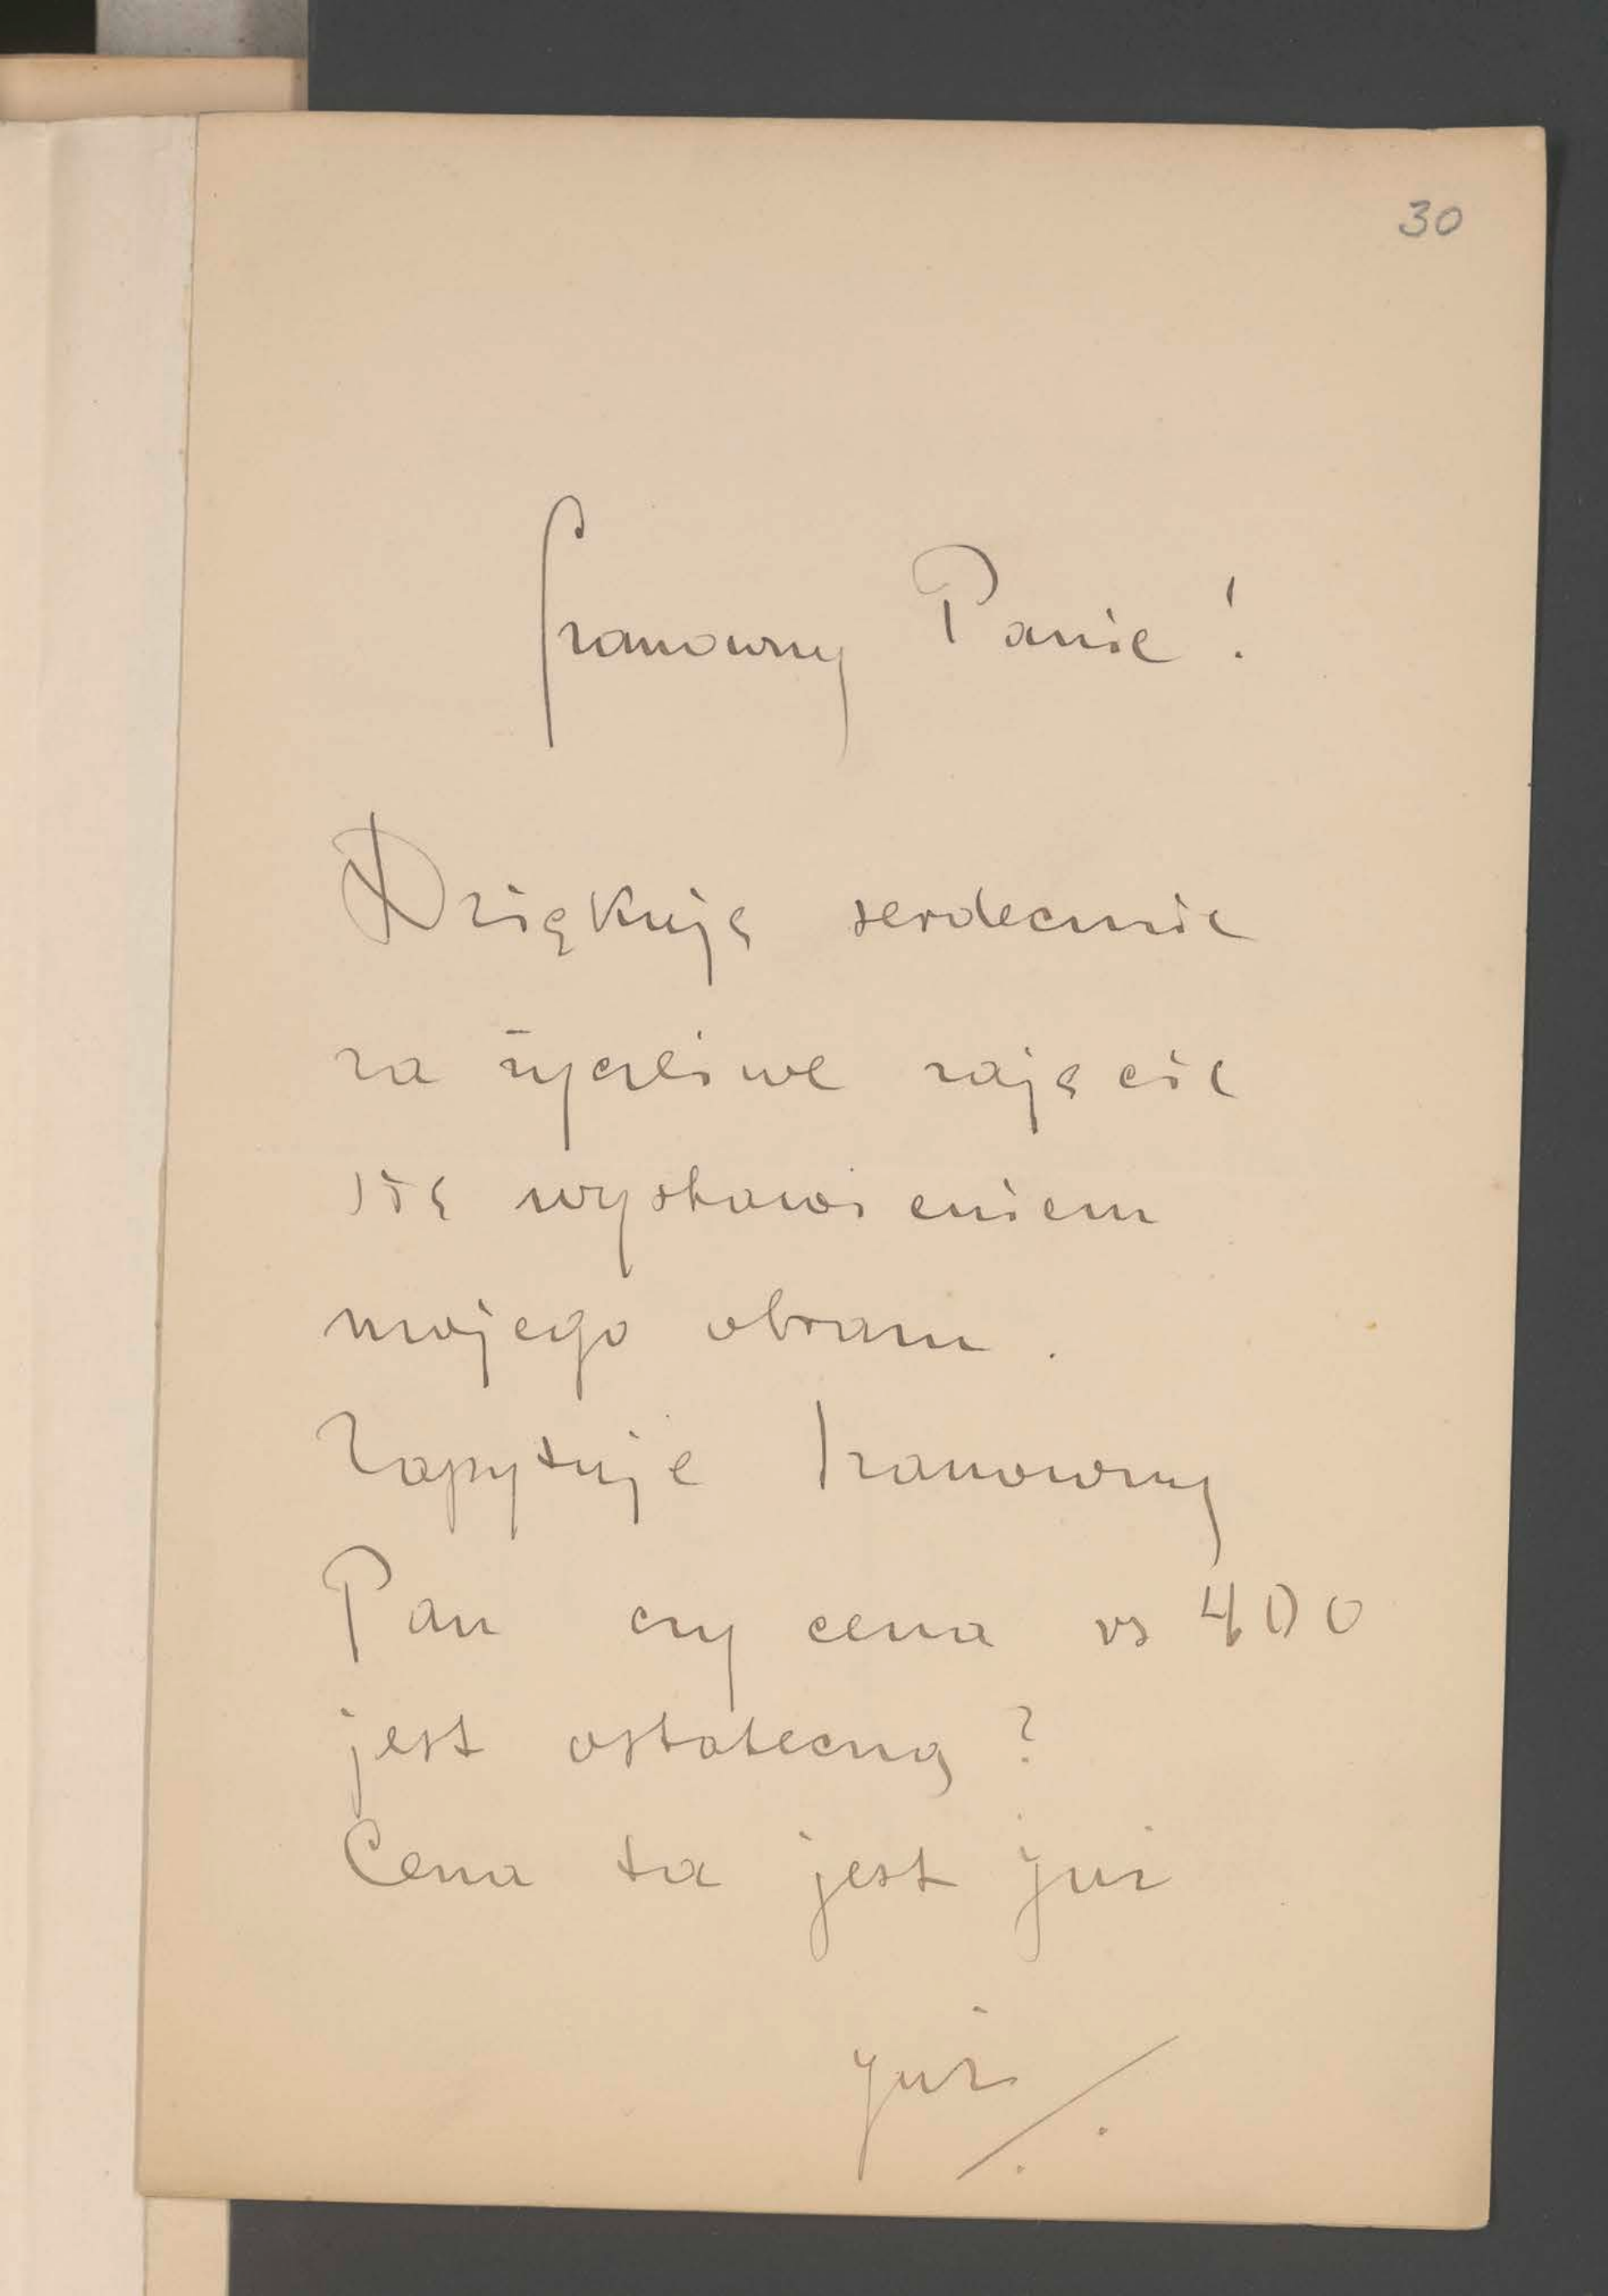 30
Szanowny Panie!
Dziękuję serdecznie
za życzliwe zajęcie
się wystawieniem
mojego obrazu.
Zapytuje Szanowny
Pan czy cena rs 400
jest ostateczną?
Cena ta jest już
już ./.